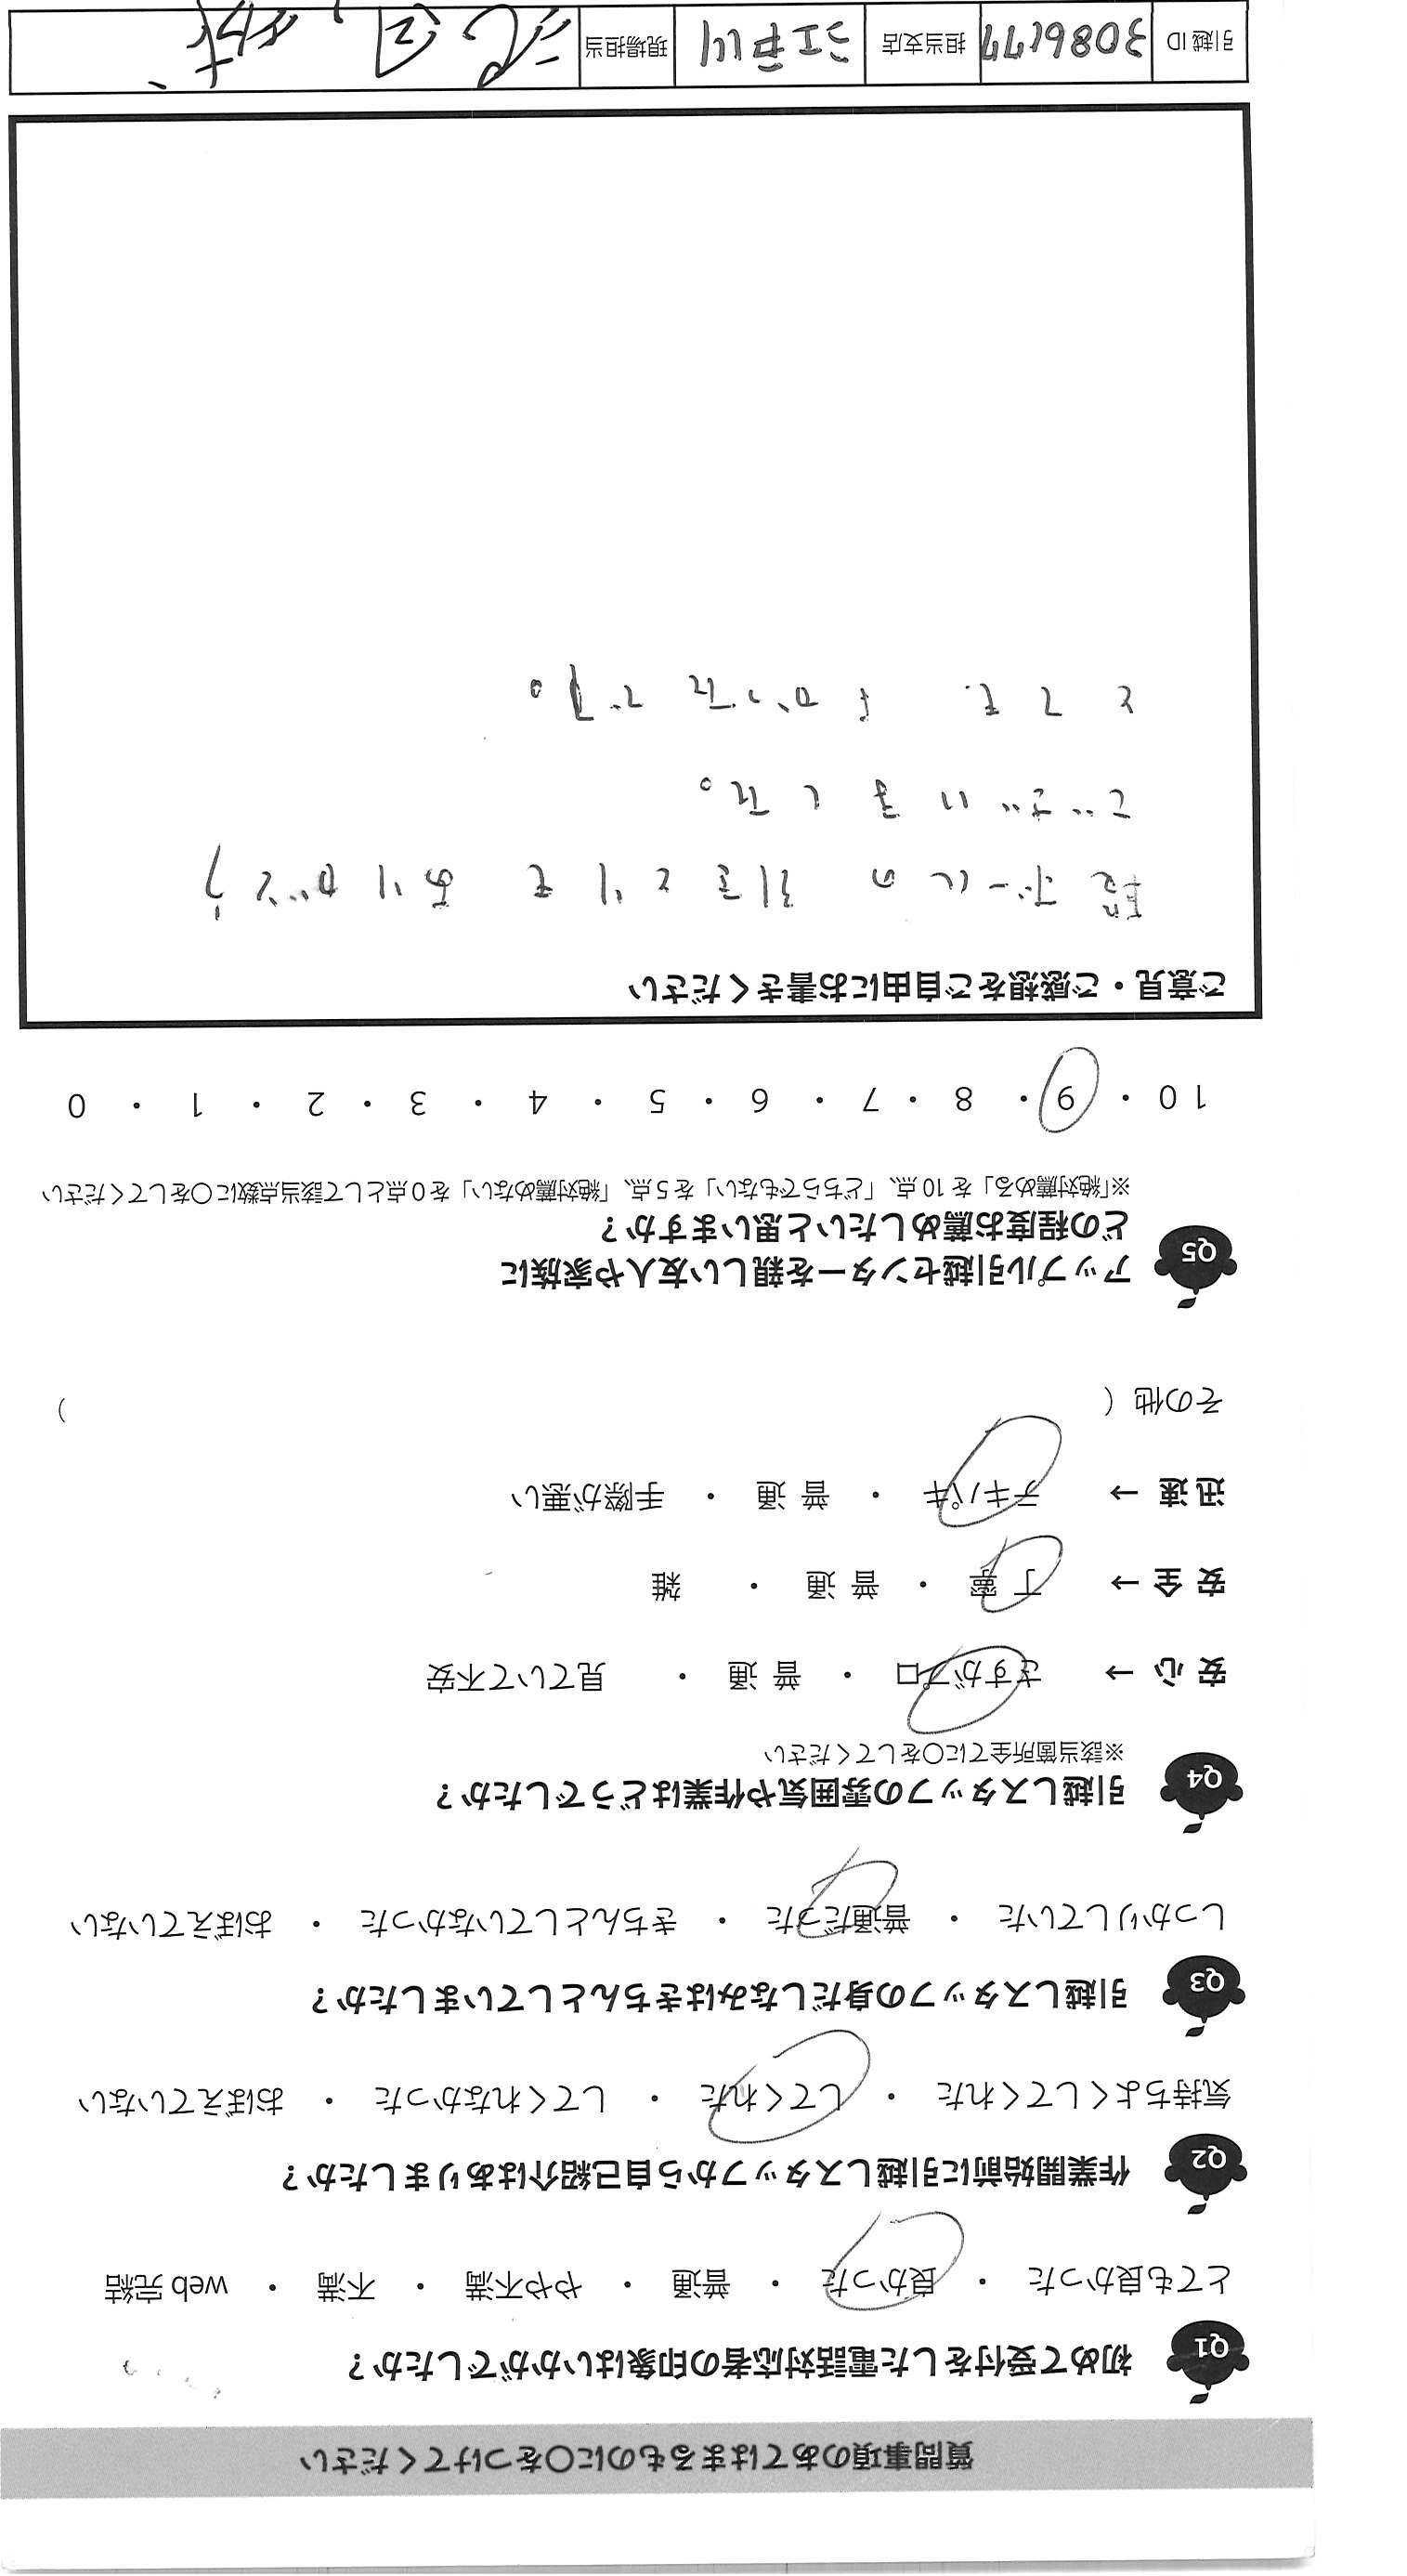 質問事項のあてはまるものに○をつけてください
Q1 初めて受付をした電話対応者の印象はいかがでしたか？
とても良かった ・ 良かった ・ 普通 ・ やや不満 ・ 不満 ・ web 完結
Q2 作業開始前に引越しスタッフから自己紹介はありましたか？
気持ちよくしてくれた ・ してくれた ・ してくれなかった ・ おぼえていない
Q3 引越しスタッフの身だしなみはきちんとしていましたか？
しっかりしていた ・ 普通だった ・ きちんとしていなかった ・ おぼえていない
Q4 引越しスタッフの雰囲気や作業はどうでしたか？
※該当箇所全てに○をしてください
安心 → さすがプロ ・ 普通 ・ 見ていて不安
安全 → 丁寧 ・ 普通 ・ 雑
迅速 → テキパキ ・ 普通 ・ 手際が悪い
その他（ ）
Q5 アップル引越センターを親しい友人や家族に
どの程度お薦めしたいと思いますか？
※「絶対薦める」を10点、「どちらでもない」を5点、「絶対薦めない」を0点として該当点数に○をしてください
10 ・ 9 ・ 8 ・ 7 ・ 6 ・ 5 ・ 4 ・ 3 ・ 2 ・ 1 ・ 0
ご意見・ご感想をご自由にお書きください
段ボールの引きとりもありがとう
ございました。
とてもよかったです。
引越ID 3086177 担当支店 江戸川 現場担当